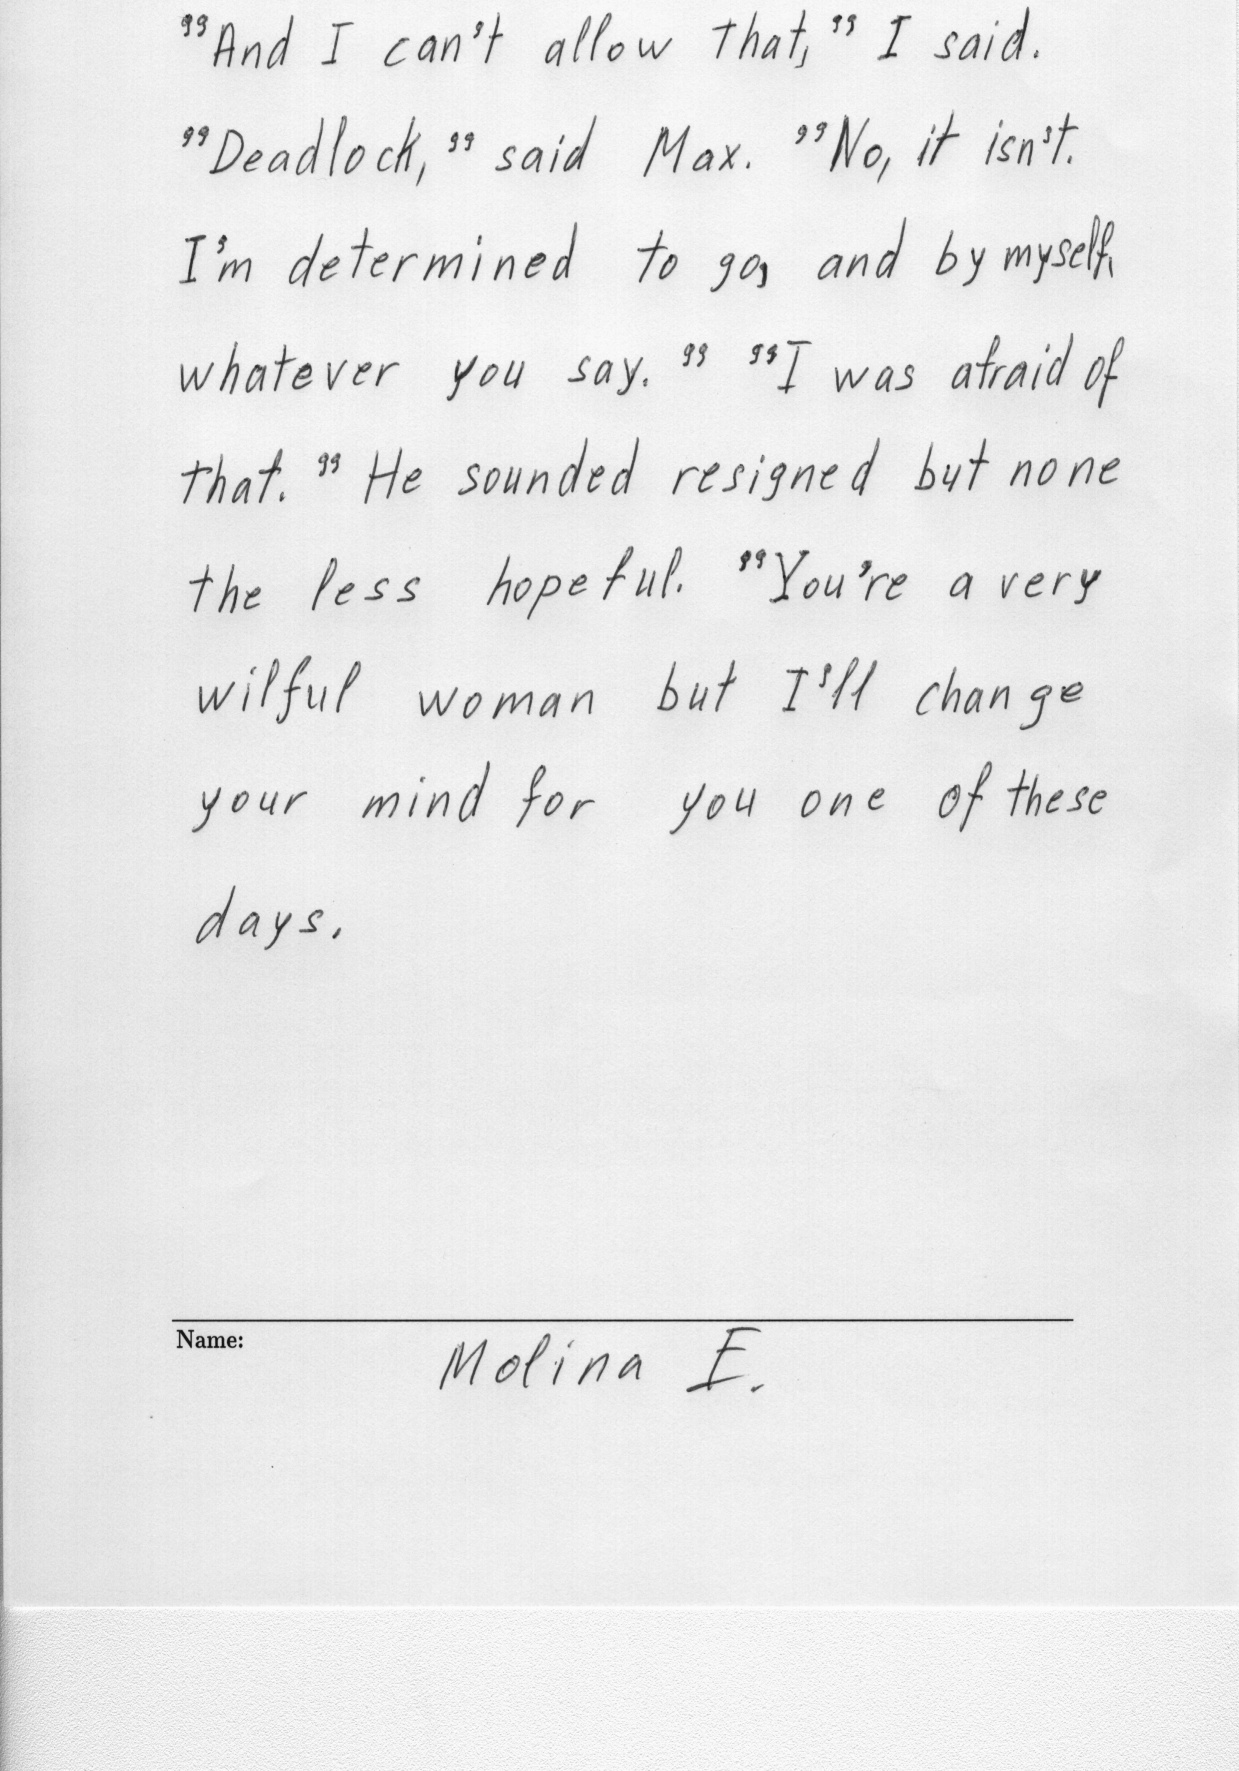 "And I can't allow that," I said.
"Deadlock," said Max. "No, it isn't.
I'm determined to go, and by myself,
whatever you say." "I was afraid of
that." He sounded resigned but none
the less hopeful. "You're a very
wilful woman but I'll change
your mind for you one of these
days.
Name:
Molina E.